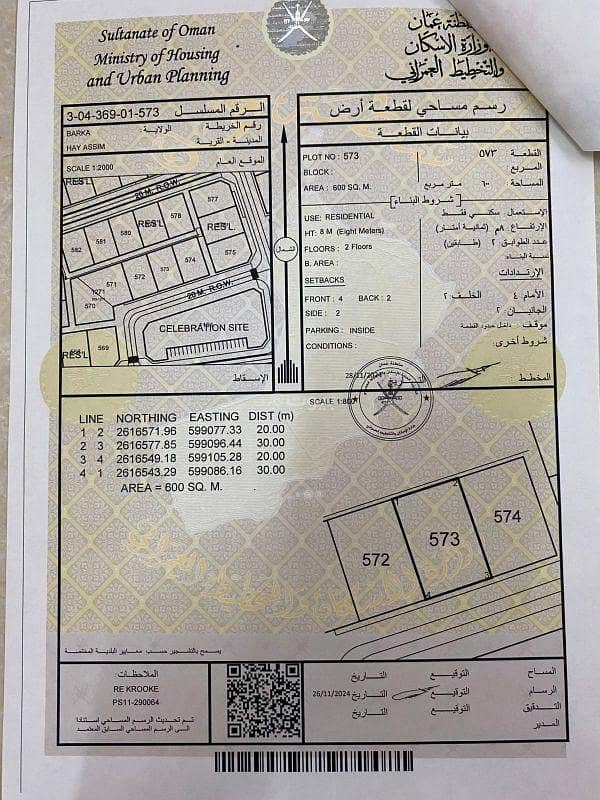 Sultanate of Oman
Ministry of Housing
and Urban Planning
سلطنة عمان
وزارة الإسكان
والتخطيط العمراني
3-04-369-01-573 الرقم المسلسل
BARKA الولاية: رقم الخريطة
HAY ASSIM المدينة - القرية
SCALE 1:2000 الموقع العام
20 M. R.O.W.
RES'L
577
578
RES'L
580
581
582
RES'L
575
574
573
572
571
1271
570
20 M. R.O.W.
CELEBRATION SITE
RES'L
569
الإسقاط
رسم مساحي لقطعة أرض
بيانات القطعة
PLOT NO : 573 القطعة : ٥٧٣
BLOCK : المربع
AREA : 600 SQ. M. المساحة : ٦٠٠ متر مربع
شروط البناء
USE: RESIDENTIAL الإستعمال سكني فقط
HT: 8 M (Eight Meters) الإرتفاع ٨م (ثمانية أمتار)
FLOORS : 2 Floors عدد الطوابق ٢ (طابقين)
B. AREA : نسبة البناء
SETBACKS الإرتدادات
FRONT : 4 BACK : 2 الأمام ٤ الخلف ٢
SIDE : 2 الجانبان ٢
PARKING : INSIDE موقف داخل حدود القطعة
CONDITIONS : شروط أخرى:
28/11/2024 المخطط
SCALE 1:800
LINE NORTHING EASTING DIST (m)
1 2 2616571.96 599077.33 20.00
2 3 2616577.85 599096.44 30.00
3 4 2616549.18 599105.28 20.00
4 1 2616543.29 599086.16 30.00
AREA = 600 SQ. M.
572
573
574
يسمح بالتشجير حسب معايير البلدية المختصة
الملاحظات:
RE KROOKE
PS11-290064
تم تحديث الرسم المساحي استنادا
الى الرسم المساحي السابق المعتمد
المساح التوقيع التاريخ
الرسام التوقيع التاريخ 26/11/2024
التدقيق التوقيع التاريخ
المدير